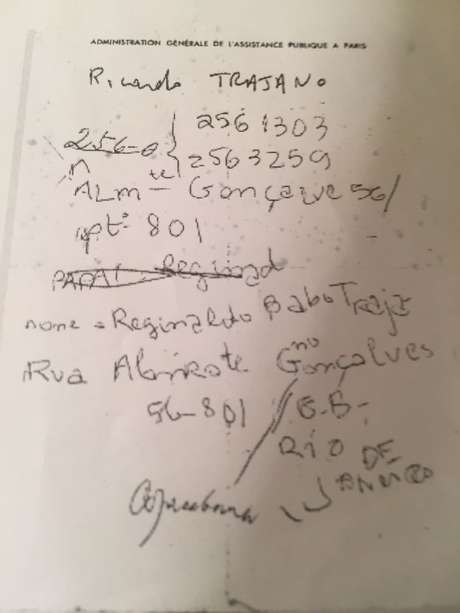 ADMINISTRATION GÉNÉRALE DE L'ASSISTANCE PUBLIQUE A PARIS
Ricardo TRAJANO
256 1303
256-0
256 3259
n
ALM - te Gonçalve 56/
apt: 801
PAPAI Reginad
nome = Reginaldo Babo Traja
no
Rua Almirote Gonçalves
56-801 / G.B-
RIO DE
JANEIRO
Copacabana